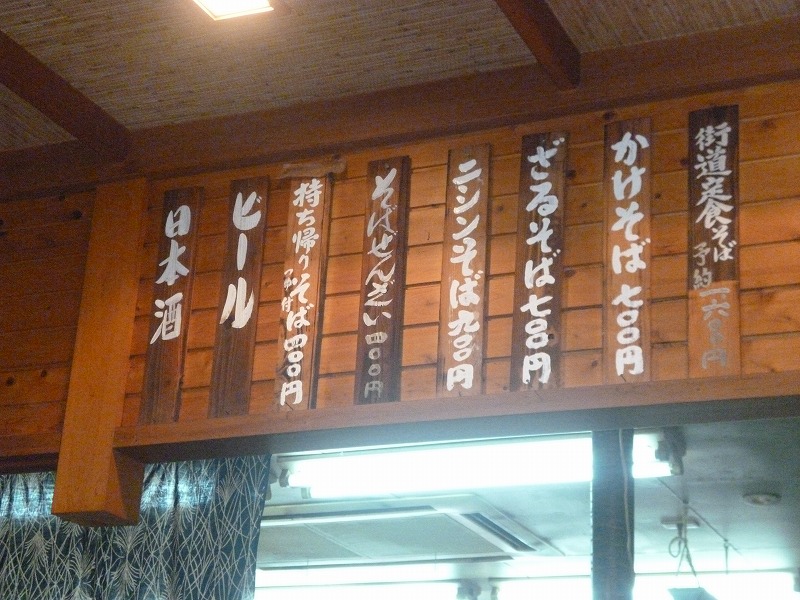 街道定食そば 予約 一六〇〇円
かけそば 七〇〇円
ざるそば 七〇〇円
ニシンそば 九〇〇円
そばぜんざい 四〇〇円
持ち帰りそば つゆ付 四〇〇円
ビール
日本酒